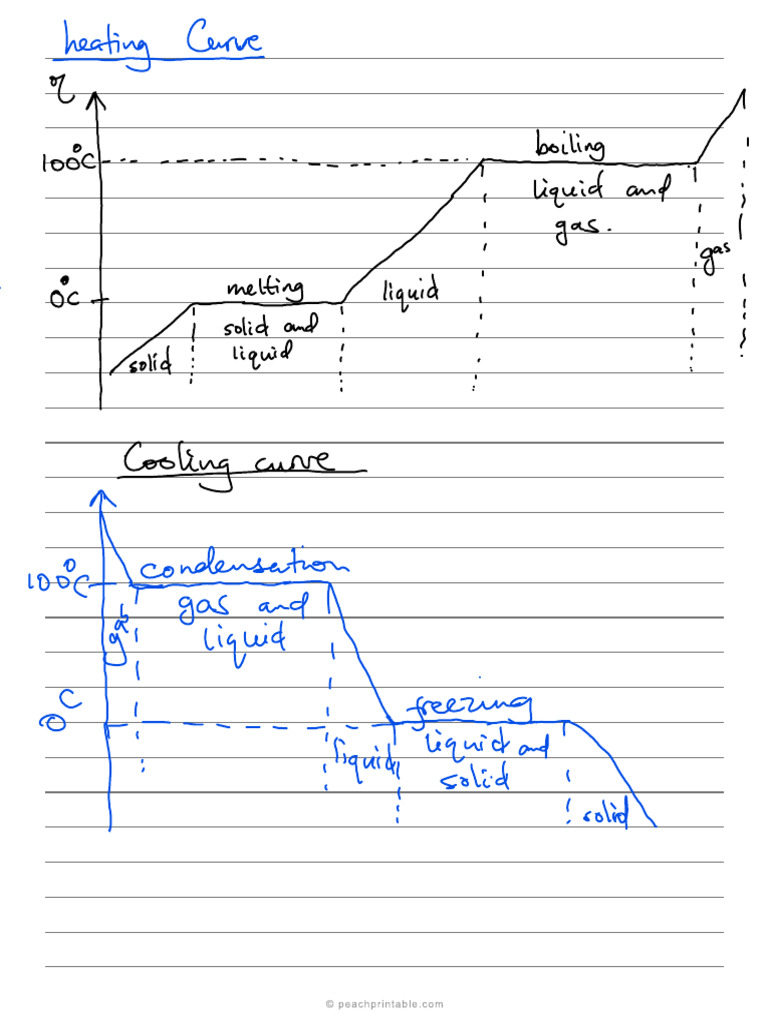 heating Curve
100°C
boiling
liquid and
gas.
gas
0°C
melting
solid and
liquid
liquid
solid
Cooling curve
100°C
condensation
gas and
liquid
gas
0 C
freezing
liquid
liquid and
solid
solid
© peachprintable.com